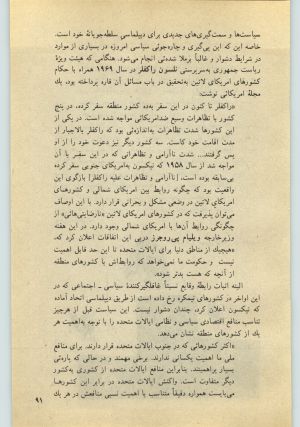 سیاست‌ها و سمت‌گیری‌های جدیدی برای دیپلماسی سلطه‌جویانهٔ خود است.
خاصه این که این پی‌گیری و چاره‌جوئی سیاسی امروزه در بسیاری از موارد
در شرایط دشوار و غالباً برملا شدنی انجام می‌شود. هنگامی که هیئت ویژهٔ
ریاست جمهوری به‌سرپرستی نلسون راکفلر در سال ۱۹۶۹ همراه با حکام
کشورهای امریکای لاتین به‌تحقیق در باب مسائل آن قاره پرداخته بود، یک
مجلهٔ امریکائی نوشت:
«راکفلر تا کنون در این سفر به‌ده کشور منطقه سفر کرده، در پنج
کشور با تظاهرات وسیع ضدامریکائی مواجه شده است. در یکی از
این کشورها شدت تظاهرات به‌اندازه‌ئی بود که راکفلر بالاجبار از
مدت اقامت خود کاست. سه کشور دیگر نیز دعوت خود را از او
پس گرفتند... شدت ناآرامی و تظاهراتی که در این سفر با آن
مواجه شد از سال ۱۹۵۸ که نیکسون به‌امریکای جنوبی سفر کرده
بی‌سابقه بوده است، [ناآرامی و تظاهرات علیه راکفلر] بازگوی این
واقعیت بود که چگونه روابط بین امریکای شمالی و کشورهای
امریکای لاتین در وضعی مشکل و بحرانی قرار دارد. با این اوصاف
می‌توان پذیرفت که در کشورهای امریکای لاتین «نارضایتی‌هائی» از
چگونگی روابط آن‌ها با امریکای شمالی وجود دارد. در این هفته
وزیرخارجه ویلیام پی‌روجرز درپی این اتفاقات اعلان کرد که،
«هیچ‌یک از مناطق دنیا برای ایالات متحده تا این حد قابل اهمیت
نیست و حکومت ما نمی‌خواهد که روابط‌اش با کشورهای منطقه
از آنچه که هست بدتر شود.»
البته اثبات رابطهٔ وقایع نسبتاً غافلگیرکنندهٔ سیاسی ـ اجتماعی که در
این اواخر در کشورهای نیمکره رخ داده از طریق دیپلماسی اتخاذ آماده
که نیکسون اعلان کرد، چندان دشوار نیست. این سیاست قبل از هرچیز
تناسب منافع اقتصادی سیاسی و نظامی ایالات متحده را با توجه به‌اهمیت هر
یک از کشورهای منطقه نشان می‌دهد.
«اکثر کشورهائی که در جنوب ایالات متحده قرار دارند. برای منافع
ملی ما اهمیت یکسانی ندارند. برخی مهمند و در حالی که پاره‌ئی
بسیار پراهمیتند. بنابراین منافع ایالات متحده از کشوری به‌کشور
دیگر متفاوت است. واکنش ایالات متحده در برابر این کشورها
می‌بایست همواره دقیقاً متناسب با اهمیت نسبی منافعش در هر یک
۹۱